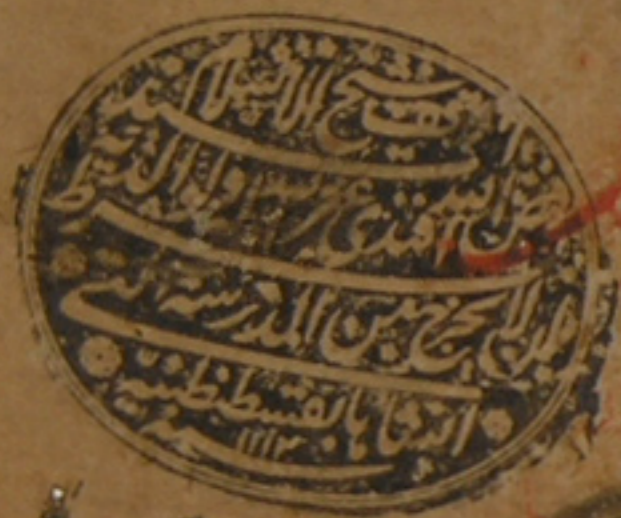 وقف شيخ الاسلام السيد
فيض الله افندي غفر الله له ولوالديه بشرط
ان لا يخرج من المدرسة التي
انشاها بقسطنطينية
سنة ١١١٢